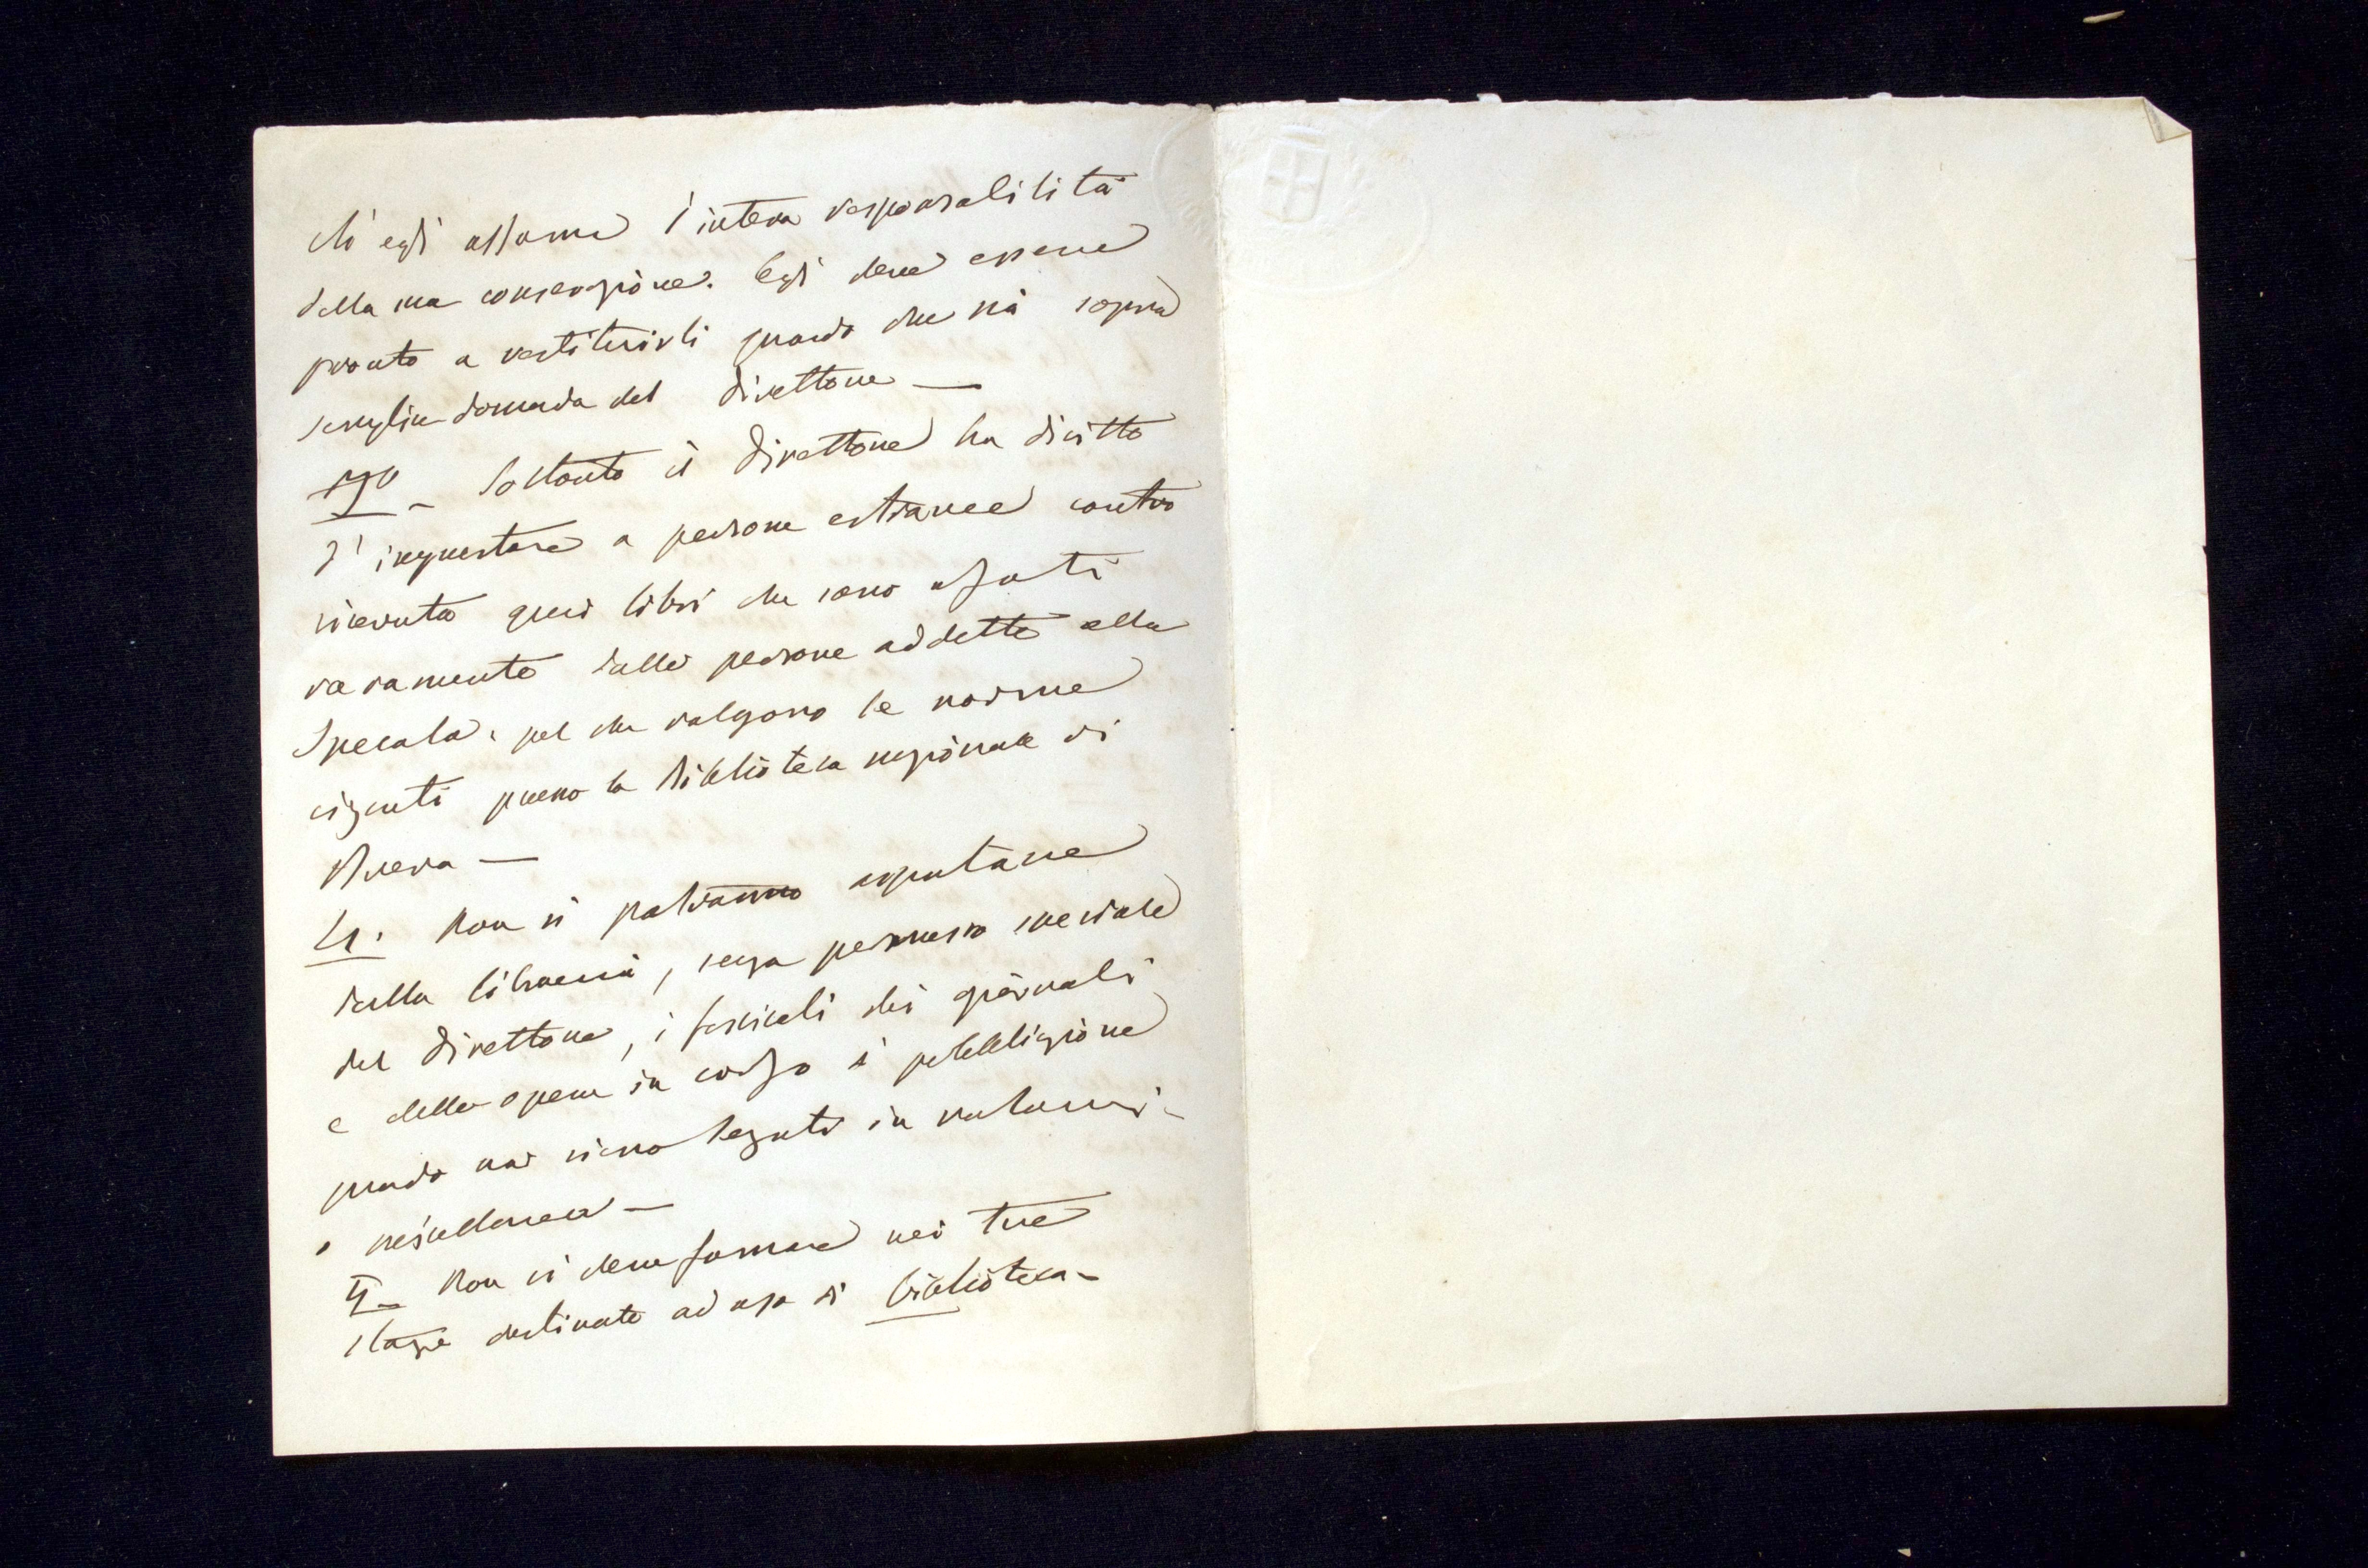 ch'egli assume l'intera responsabilità
della sua conservazione. Egli deve essere
pronto a restituirli quando che sia sopra
semplice domanda del Direttore —
— Soltanto il Direttore ha diritto
d'imprestare a persone estranee contro
ricevuta quei libri che sono usati
raramente dalle persone addette alla
Specola: pel che valgono le norme
vigenti presso la Biblioteca nazionale di
Brera —
4. Non si potranno asportare
dalla libreria, senza permesso speciale
del Direttore, i fascicoli dei giornali
e delle opere in corso di pubblicazione
quando non sieno legati in volumi
o miscellanea —
5— Non si deve fumare nei tre
stanze destinate ad uso di biblioteca —